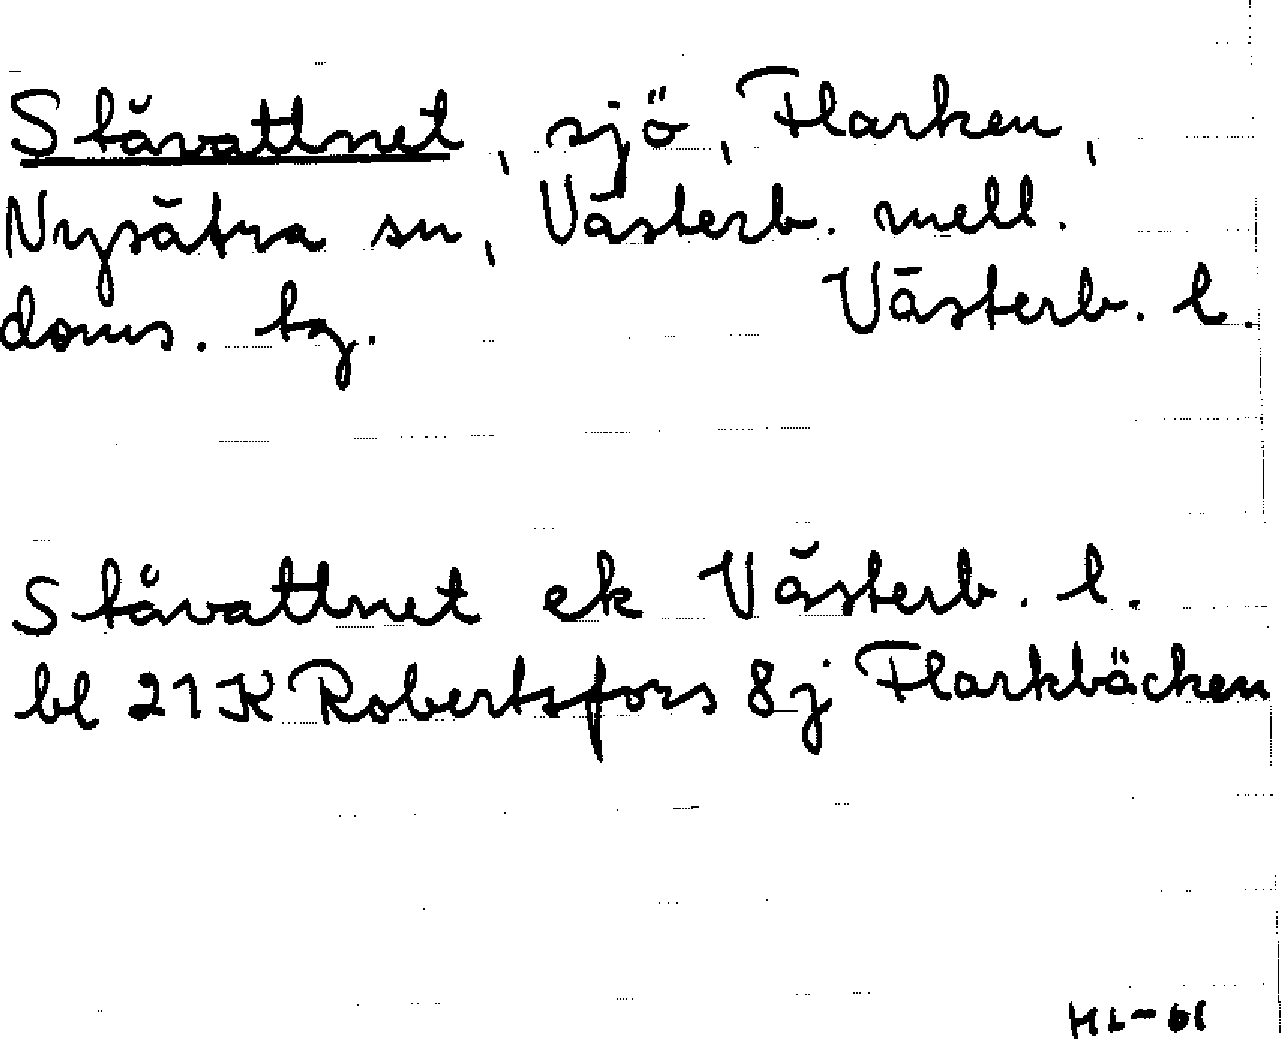 Ståvattnet, sjö, Flarken,
Nysätra sn, Västerb. mell.
doms. tg. Västerb. l.
Ståvattnet ek Västerb. l.
bl 21K Robertsfors 8j Flarkbäcken